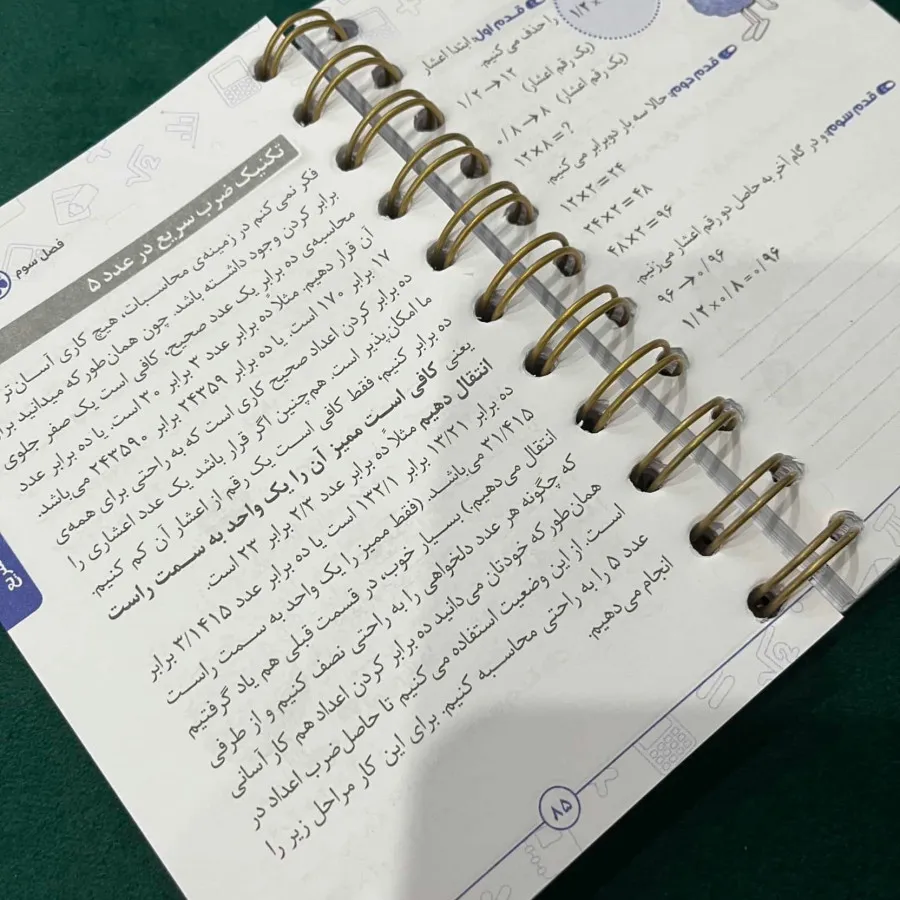 فصل سوم
تکنیک ضرب سریع در عدد ۵
فکر نمی کنم در زمینه‌ی محاسبات، هیچ کاری آسان‌تر
برابر کردن وجود داشته باشد. چون همان‌طور که میدانید برای
محاسبه‌ی ده برابر یک عدد صحیح، کافی است یک صفر جلوی
آن قرار دهیم. مثلاً ده برابر عدد ۳ برابر ۳۰ است. یا ده برابر عدد
۱۷ برابر ۱۷۰ است. یا ده برابر ۲۴۳۵۹ برابر ۲۴۳۵۹۰ می‌باشد.
ده برابر کردن اعداد صحیح کاری است که به راحتی برای همه‌ی
ما امکان‌پذیر است. هم‌چنین اگر قرار باشد یک عدد اعشاری را
ده برابر کنیم، فقط کافی است یک رقم از اعشار آن کم کنیم.
یعنی کافی است ممیز آن را یک واحد به سمت راست
انتقال دهیم مثلاً ده برابر عدد ۲/۳ برابر ۲۳ است
ده برابر ۱۳/۲۱ برابر ۱۳۲/۱ است یا ده برابر عدد ۳/۱۴۱۵ برابر
۳۱/۴۱۵ می‌باشد. (فقط ممیز را یک واحد به سمت راست
انتقال می‌دهیم.) بسیار خوب، در قسمت قبلی هم یاد گرفتیم
که چگونه هر عدد دلخواهی را به راحتی نصف کنیم و از طرفی
همان‌طور که خودتان می‌دانید ده برابر کردن اعداد هم کار آسانی
است. از این وضعیت استفاده می کنیم تا حاصل‌ضرب اعداد در
عدد ۵ را به راحتی محاسبه کنیم. برای این کار مراحل زیر را
انجام می‌دهیم.
۸۵
۱/۲ ×
قدم اول: ابتدا اعشار
را حذف می کنیم.
۱/۲ → ۱۲ (یک رقم اعشار)
۰/۸ → ۸ (یک رقم اعشار)
۱۲ × ۸ = ?
قدم دوم: حالا سه بار دوبرابر می کنیم.
۱۲ × ۲ = ۲۴
۲۴ × ۲ = ۴۸
۴۸ × ۲ = ۹۶
قدم سوم: و در گام آخر به حاصل دو رقم اعشار می‌زنیم.
۹۶ → ۰/۹۶
۱/۲ × ۰/۸ = ۰/۹۶